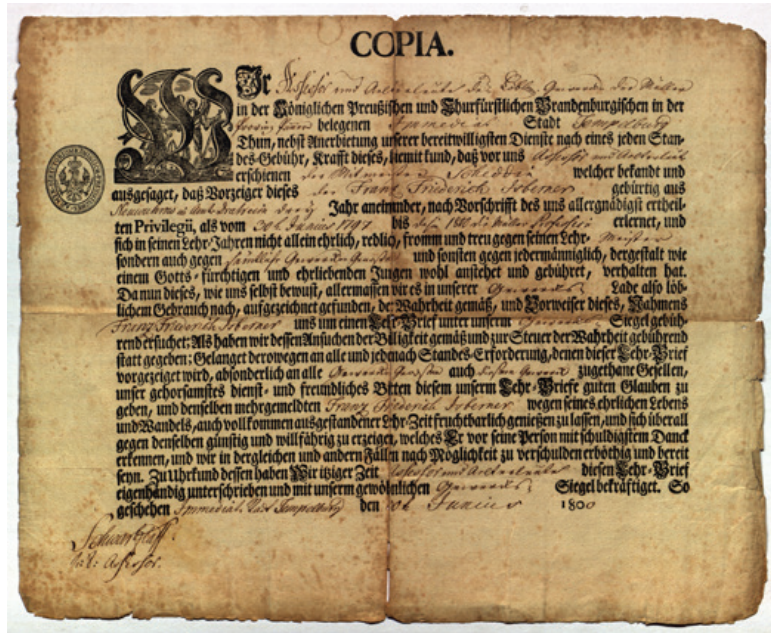 COPIA.
Wir Assessor und Aelterleute des Löbl. Gewercks der Müller
in der Königlichen Preußischen und Churfürstlichen Brandenburgischen in der
belegenen Immediat Stadt Tempelburg
Thun, nebst Anerbietung unserer bereitwilligsten Dienste nach eines jeden Stan-
des-Gebühr, Krafft dieses, hiemit kund, daß vor uns Assessor und
erschienen der Mitmeister welcher bekandt und
ausgesaget, daß Vorzeiger dieses der Franz Friederich gebürtig aus
Jahr aneinander, nach Vorschrifft des uns allergnädigst ertheil-
ten Privilegii, als vom Junius 1797 bis 1800 die Müller Profession erlernet, und
sich in seinen Lehr-Jahren nicht allein ehrlich, redlich, fromm und treu gegen seinen Lehr-Meister
sondern auch gegen Gewercks und sonsten gegen jedermänniglich, dergestalt wie
einem Gotts-fürchtigen und ehrliebenden Jungen wohl anstehet und gebühret, verhalten hat.
Da nun dieses, wie uns selbst bewust, allermassen wir es in unserer Gewercks Lade also löb-
lichem Gebrauch nach, aufgezeichnet gefunden, der Wahrheit gemäß, und Vorweiser dieses, Nahmens
Franz Friederich uns um einen Lehr-Brief unter unserm Gewercks Siegel gebüh-
rend ersuchet: Als haben wir dessen Ansuchen der Billigkeit gemäß und zur Steuer der Wahrheit gebührend
statt gegeben; Gelanget derowegen an alle und jede nach Standes-Erforderung, denen dieser Lehr-Brief
vorgezeiget wird, absonderlich an alle Gewercks auch zugethane Gesellen,
unser gehorsamstes dienst- und freundliches Bitten diesem unserm Lehr-Briefe guten Glauben zu
geben, und denselben mehrgemeldten Franz Friederich wegen seines ehrlichen Lebens
und Wandels, auch vollkommen ausgestandener Lehr-Zeit fruchtbarlich geniessen zu lassen, und sich überall
gegen denselben günstig und willfährig zu erzeigen, welches Er vor seine Person mit schuldigstem Danck
erkennen, und wir in dergleichen und andern Fällen nach Möglichkeit zu verschulden erböthig und bereit
seyn. Zu Uhrkund dessen haben Wir itziger Zeit Assessor und Aelterleute diesen Lehr-Brief
eigenhändig unterschrieben und mit unserm gewöhnlichen Gewercks Siegel bekräftiget. So
geschehen Immediat Stadt Tempelburg den Junius 1800
Assessor.